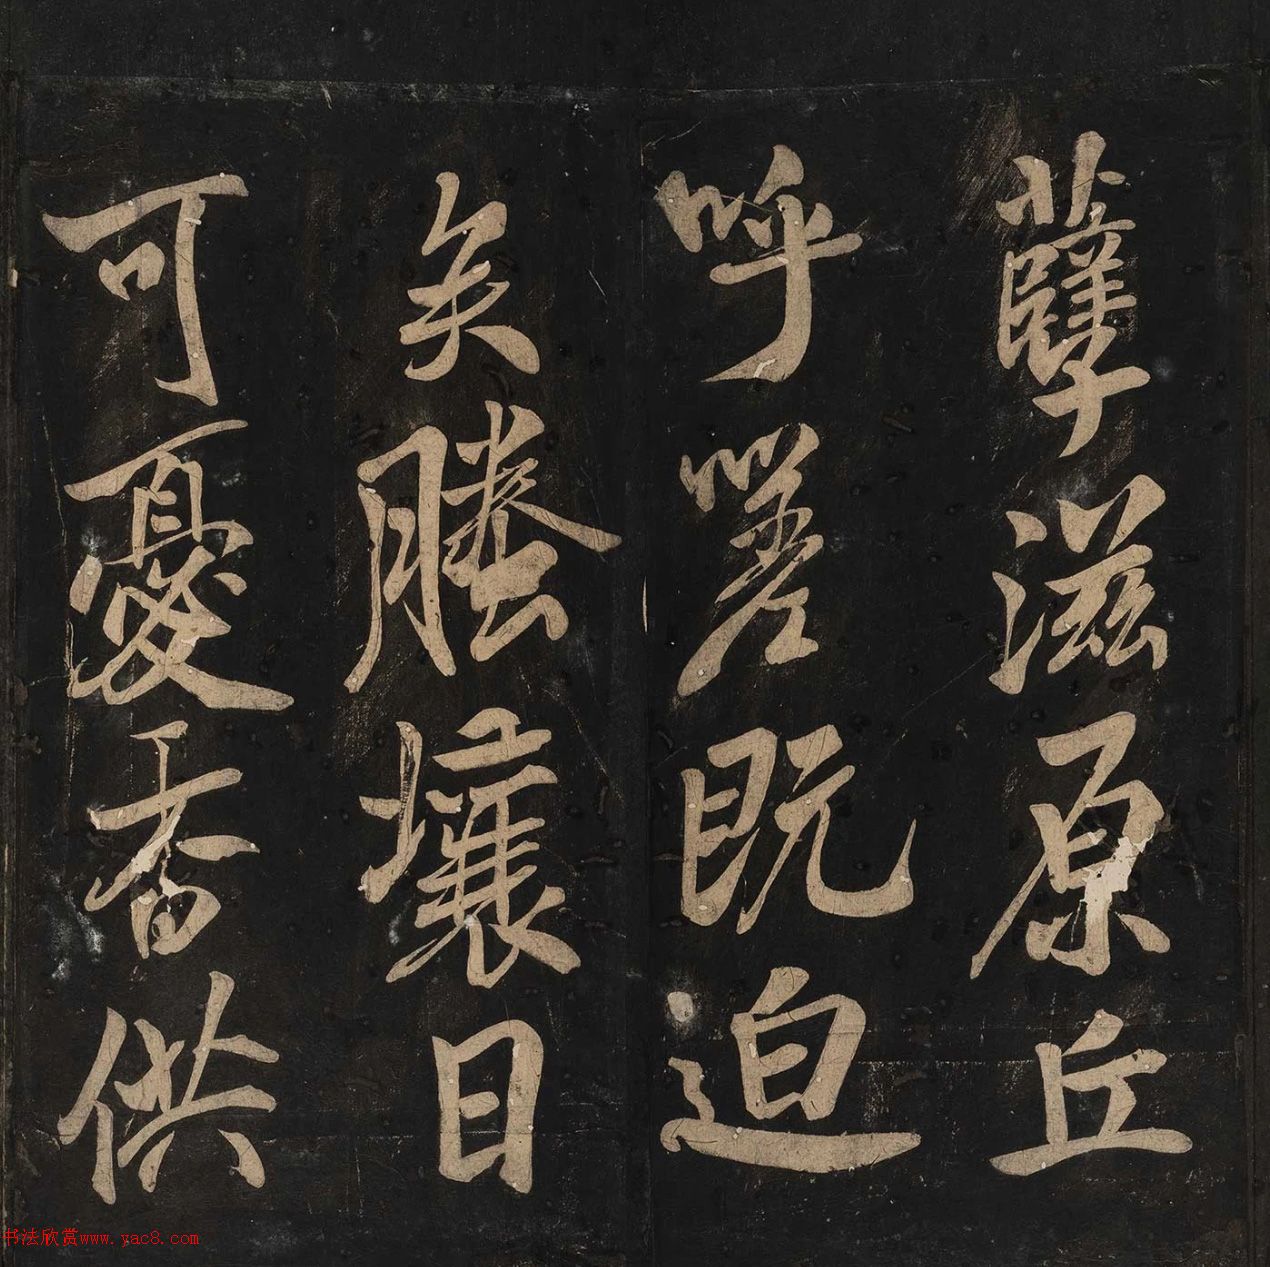 孽滋原丘
呼嗟既迫
矣螣壤日
可憂香供
书法欣赏www.yac8.com